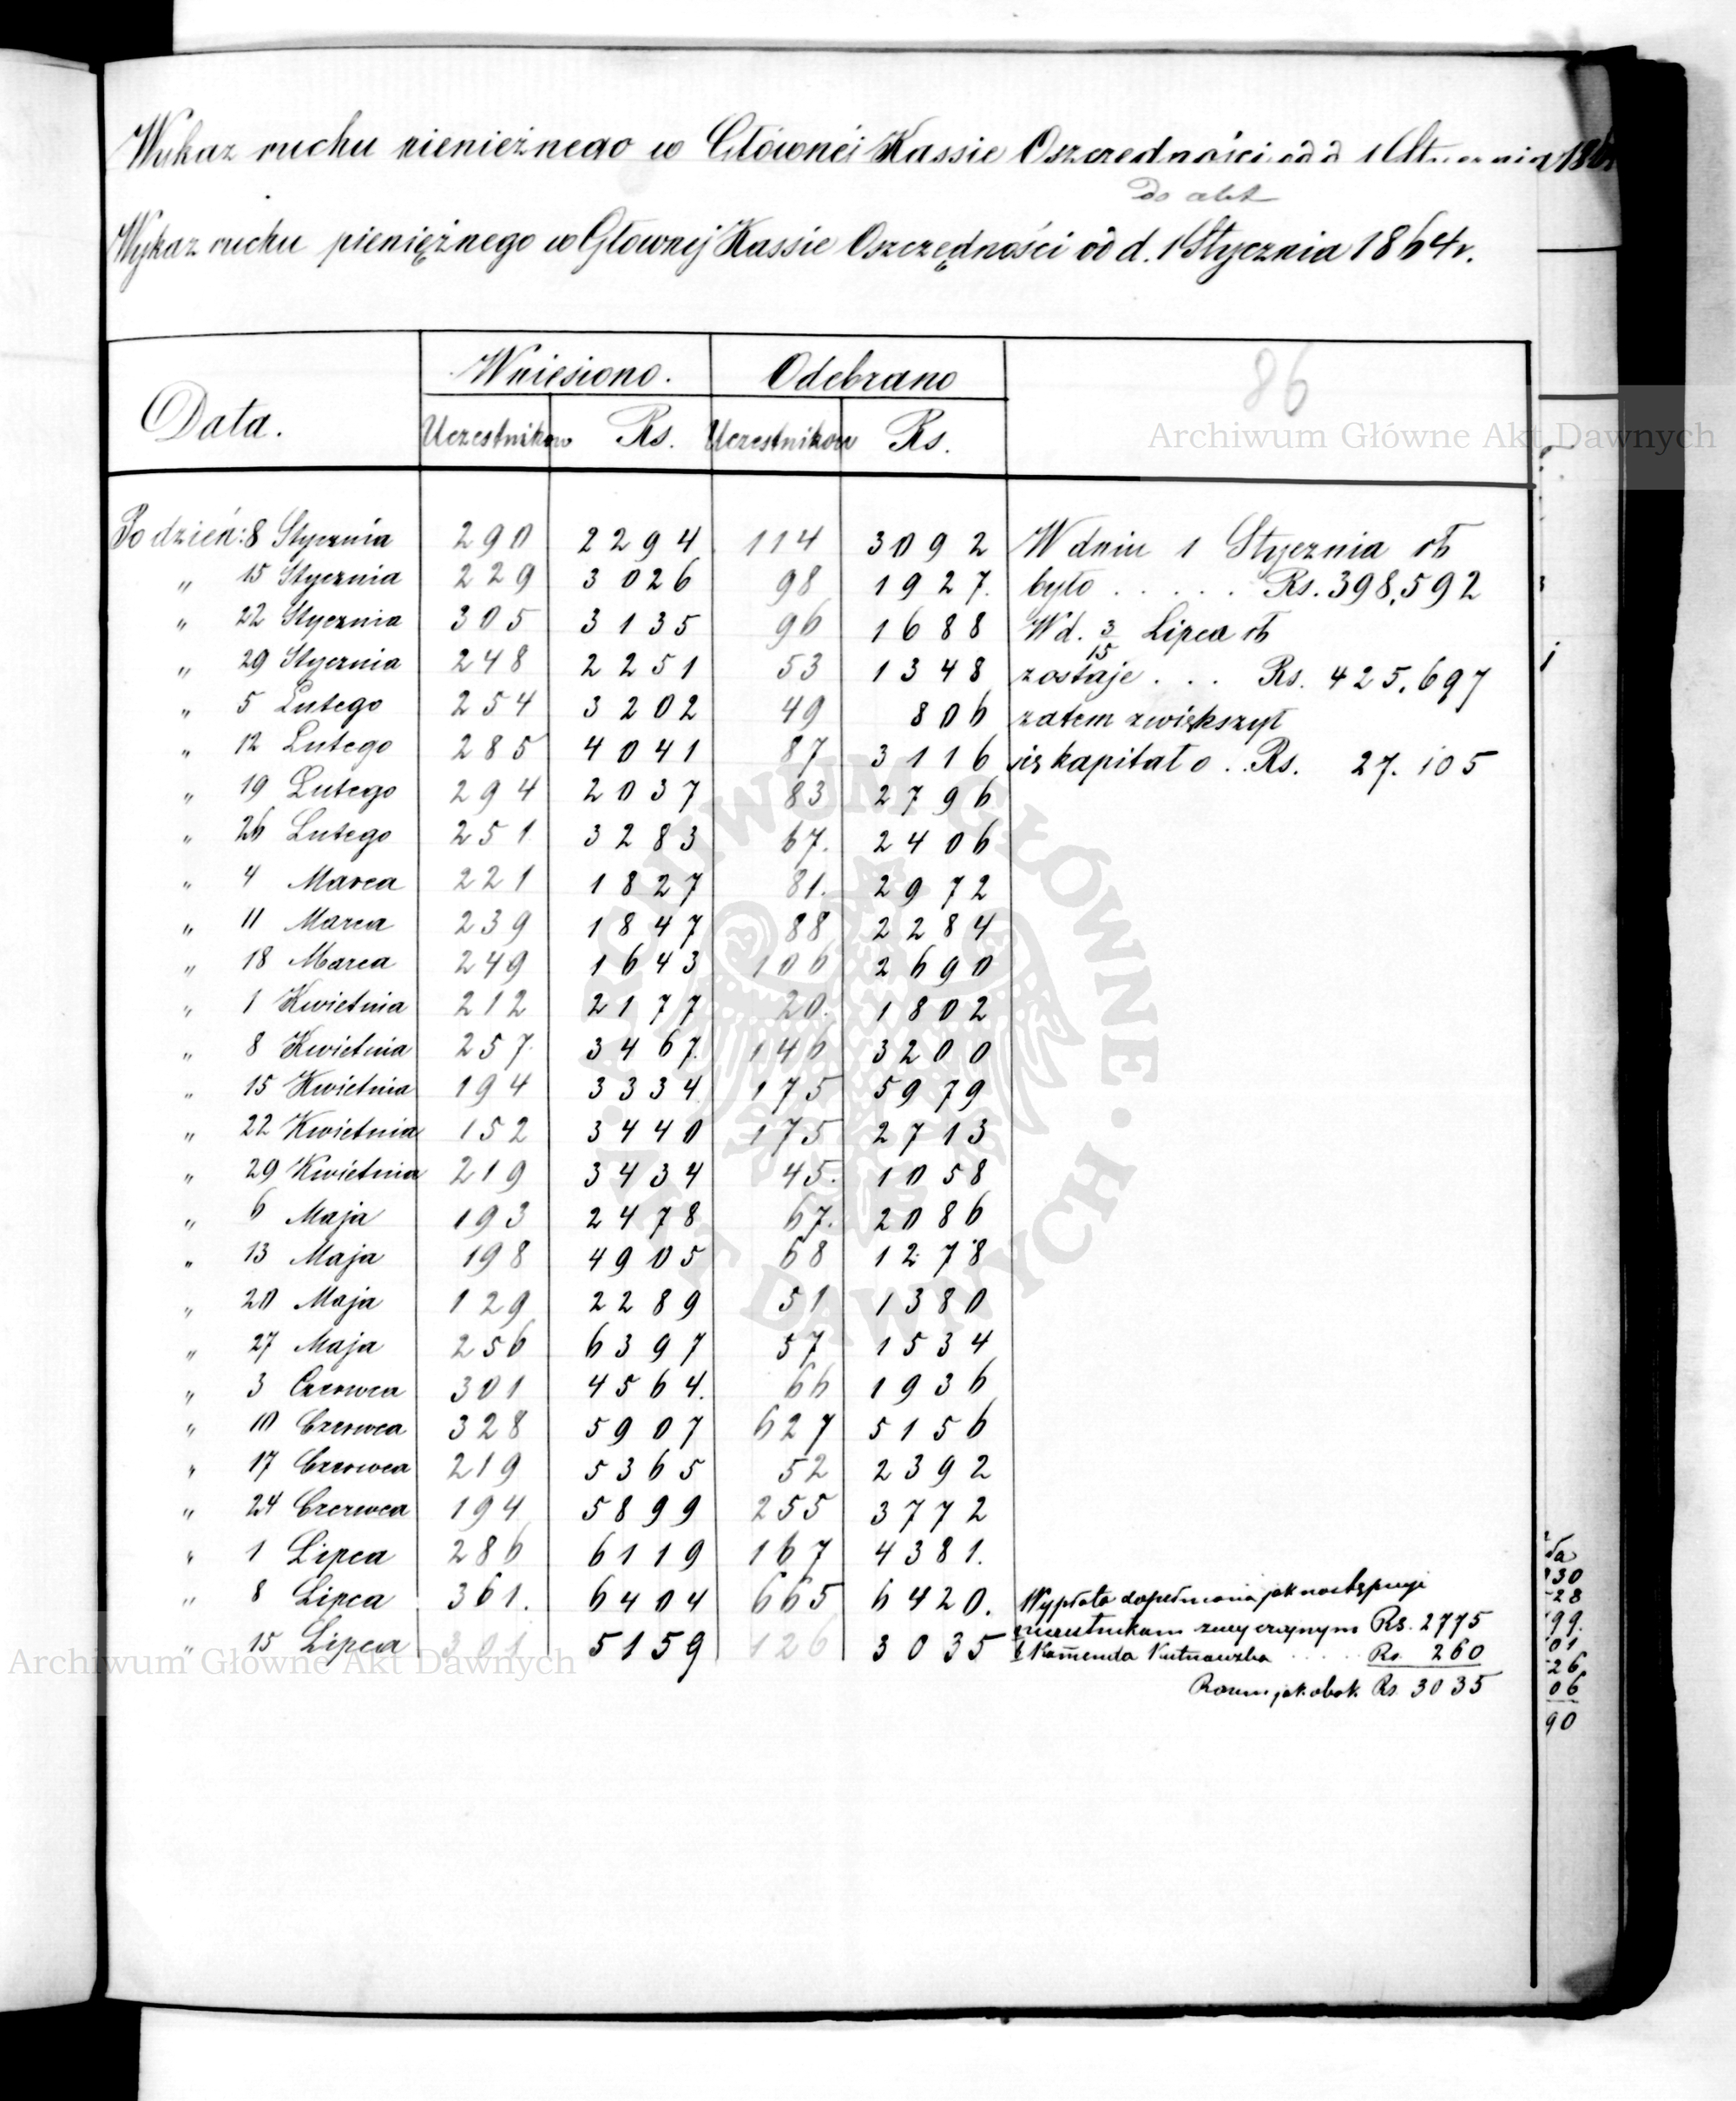 Wykaz ruchu pieniężnego w Głównéj Kassie Oszczędności od d. 1 Stycznia
Do akt
Wykaz ruchu pieniężnego w Głownej Kassie Oszczędności od d. 1 Stycznia 1864 r.
86
Archiwum Główne Akt Dawnych
Data. Wniesiono. Odebrano
Uczestników Rs. Uczestników Rs.
Po dzień: 8 Stycznia 290 2294 114 3092 W dniu 1 Stycznia rb
„ 15 Stycznia 229 3026 98 1927. było . . . . . Rs. 398,592
„ 22 Stycznia 305 3135 96 1688 W d. 3/15 Lipca rb
„ 29 Stycznia 248 2251 53 1348 zostaje . . . Rs. 425,697
„ 5 Lutego 254 3202 49 806 zatem zwiększył
„ 12 Lutego 285 4041 87 3116 się kapitał o . . Rs. 27.105
„ 19 Lutego 294 2037 83 2796
„ 26 Lutego 251 3283 67. 2406
„ 4 Marca 221 1827 81. 2972
„ 11 Marca 239 1847 88 2284
„ 18 Marca 249 1643 106 2690
„ 1 Kwietnia 212 2177 20. 1802
„ 8 Kwietnia 257. 3467. 146 3200
„ 15 Kwietnia 194 3334 175 5979
„ 22 Kwietnia 152 3440 175 2713
„ 29 Kwietnia 219 3434 45. 1058
„ 6 Maja 193 2478 67. 2086
„ 13 Maja 198 4905 68 1278
„ 20 Maja 129 2289 51 1380
„ 27 Maja 256 6397 57 1534
„ 3 Czerwca 301 4564. 66 1936
„ 10 Czerwca 328 5907 627 5156
„ 17 Czerwca 219 5365 52 2392
„ 24 Czerwca 194 5899 255 3772
„ 1 Lipca 286 6119 167 4381.
„ 8 Lipca 361. 6404 665 6420. Wypłata dopełniona jak następuje
„ 15 Lipca 301 5159 126 3035 uczestnikom zwyczajnym Rs. 2775
Komenda . . . . . Rs. 260
Razem jak obok Rs. 3035
Archiwum Główne Akt Dawnych
ARCHIWUM GŁÓWNE · AKT DAWNYCH ·
30
28
99.
01
26
06
90